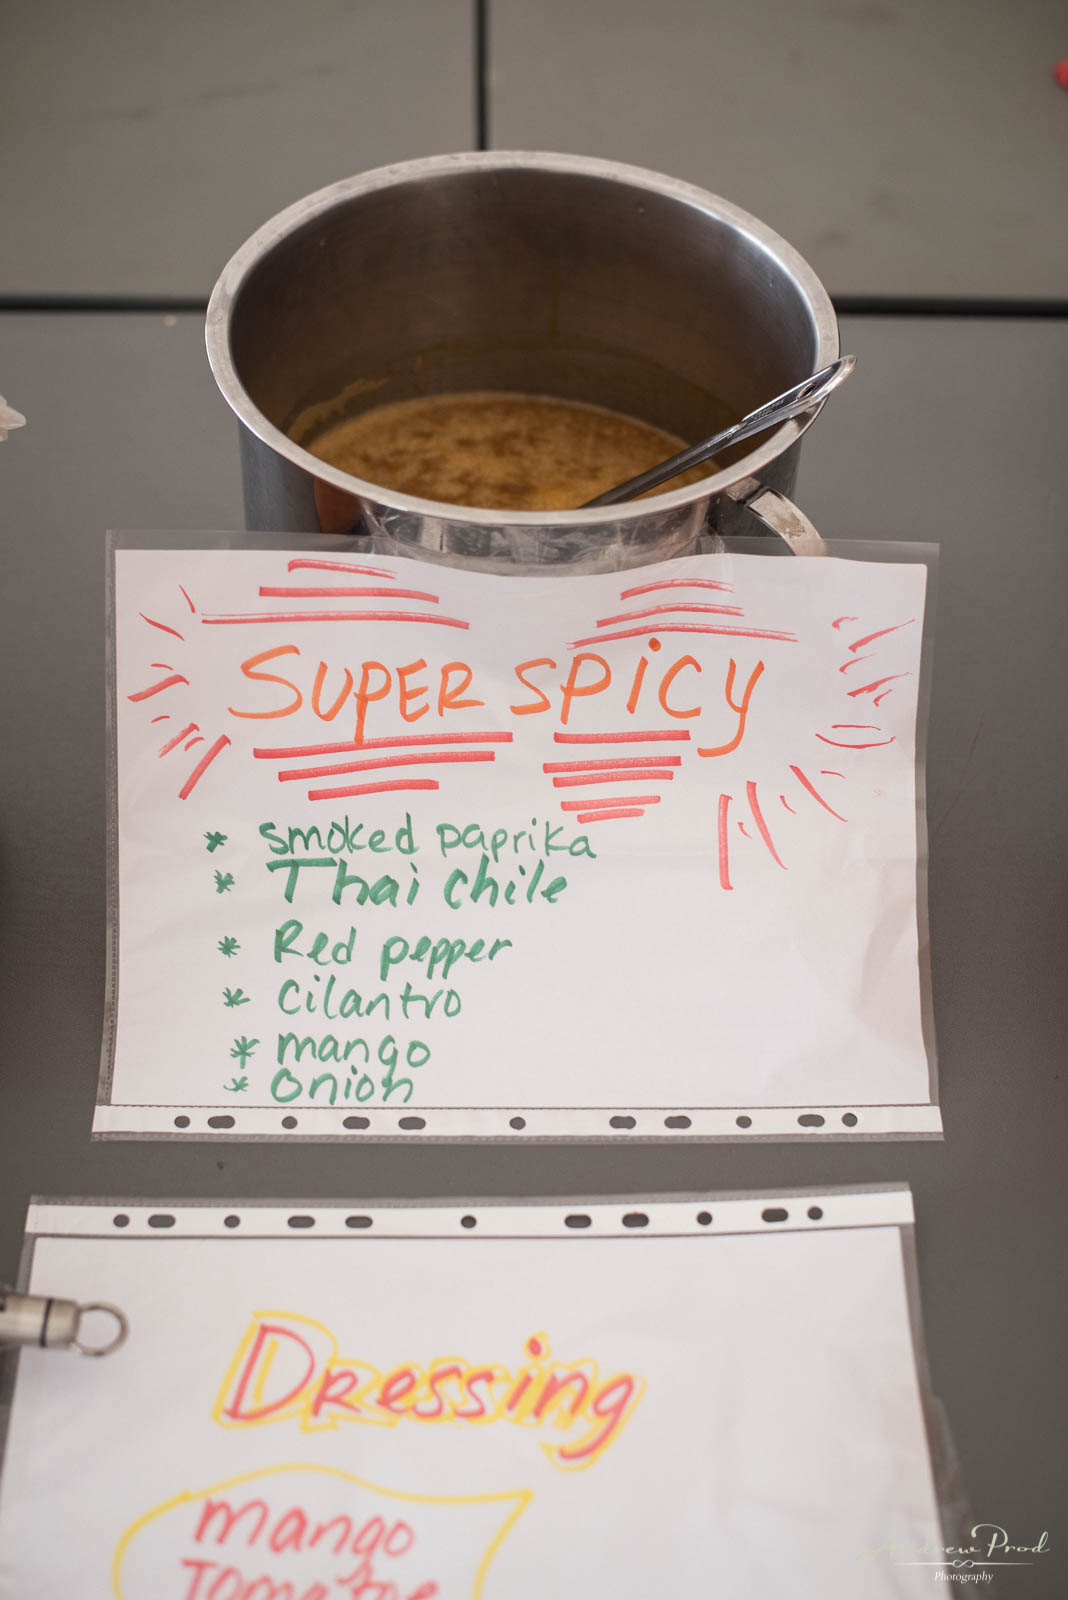 SUPER SPiCY
* smoked paprika
* Thai chile
* Red pepper
* cilantro
* mango
* onion
Dressing
mango
Tomatoe
Andrew Prod
Photography